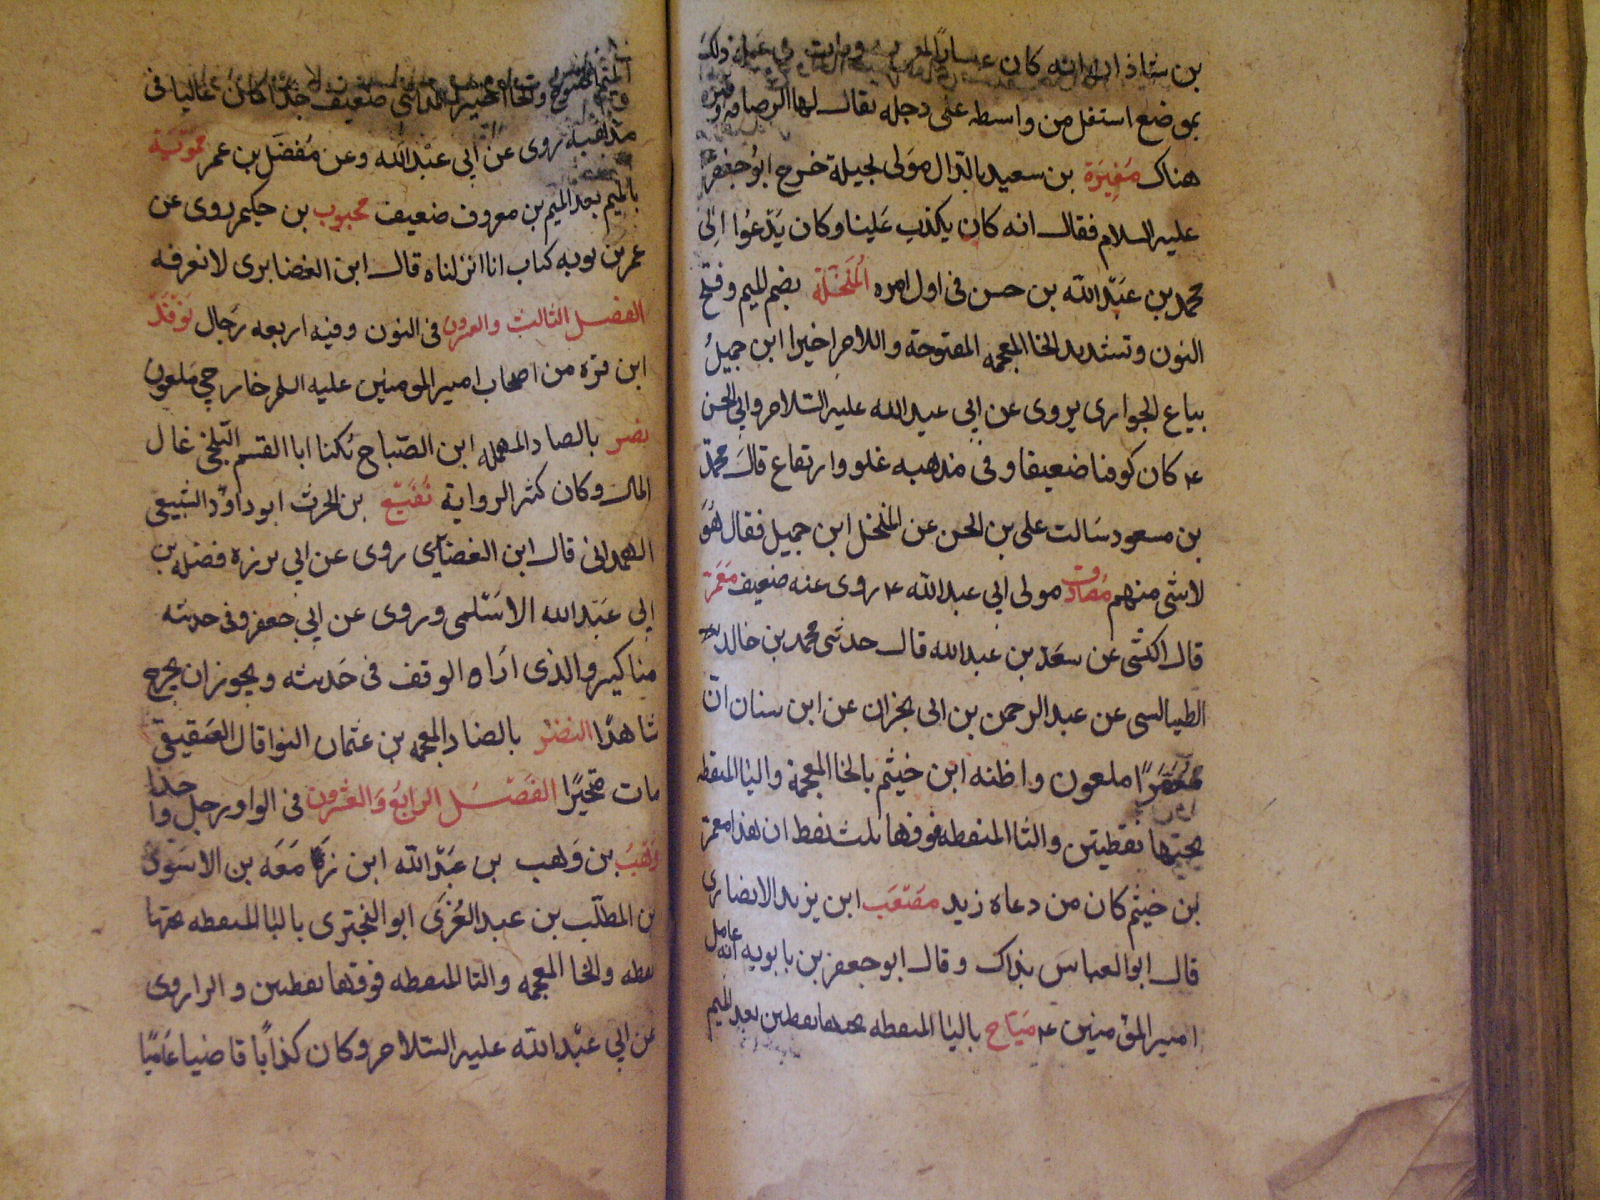 بن شاذان انه كان عساليا وفى عمله ذلك
بموضع اسفل من واسط على دجله يقال لها الرصافه وقبره
هناك مغيرة بن سعيد بالدال مولى بجيلة خرج ابو جعفر
عليه السلام فقال انه كان يكذب علينا وكان يدعوا الى
محمد بن عبد الله بن حسن فى اول امره المنخلة بضم الميم وفتح
النون وتشديد الخا المعجمه المفتوحة واللام اخيرا ابن جميل
بياع الجوارى يروى عن ابى عبد الله عليه السلام وابى الحسن
ع كان كوفيا ضعيفا وفى مذهبه غلو وارتفاع قال محمد
بن مسعود سالت على بن الحسن عن المنخل ابن جميل فقال هو
لاشى منهم مولى ابى عبد الله ع روى عنه ضعيف معمر
قال الكشى عن سعد بن عبد الله قال حدثنى محمد بن خالد
الطيالسى عن عبد الرحمن بن ابى نجران عن ابن سنان ان
معمرا ملعون واظنه ابن خيثم بالخا المعجمة واليا المنقطه
تحتها نقطتين والثا المنقطه فوقها ثلث نقط ان هذا معمر
بن خيثم كان من دعاه زيد مصعب ابن يزيد الانصارى
قال ابو العباس بذاك وقال ابو جعفر بن بابويه انه عامل
امير المؤمنين ع مياح باليا المنقطه تحتها نقطتين بعد الميم
المفتوح والحا اخيرا المداينى ضعيف جدا كان غاليا فى
مذهبه روى عن ابى عبد الله وعن مفضل بن عمر مموية
بالميم بعد الميم بن معروف ضعيف محبوب بن حكيم روى عن
عمر بن توبه كتاب انا انزلناه قال ابن الغضايرى لا نعرفه
الفصل الثالث والعشرون فى النون وفيه اربعه رجال نوفل
ابن قره من اصحاب امير المومنين عليه السلم خارجى ملعون
نصر بالصاد المهمله ابن الصباح يكنا ابا القسم البلخى غال
المال وكان كثير الرواية نفيع بن الحرث ابو داود السبيعى
الهمدانى قال ابن الغضايرى روى عن ابى برزه فضله بن
ابى عبد الله الاسلمى وروى عن ابى جعفر وفى حديثه
مناكير والذى اراه الوقف فى حديثه ويجوز ان يخرج
شاهدا النضر بالضاد المعجمه بن عثمان النوا قال العقيقى
مات متحيرا الفصل الرابع والعشرون فى الواو رجل واحد
وهب بن وهب بن عبد الله ابن زمعه بن الاسود
بن المطلب بن عبد العزى ابو البخترى بالبا المنقطه تحتها
نقطه والخا المعجمه والتا المنقطه فوقها نقطتين والرا روى
عن ابى عبد الله عليه السلام وكان كذابا قاضيا عاميا